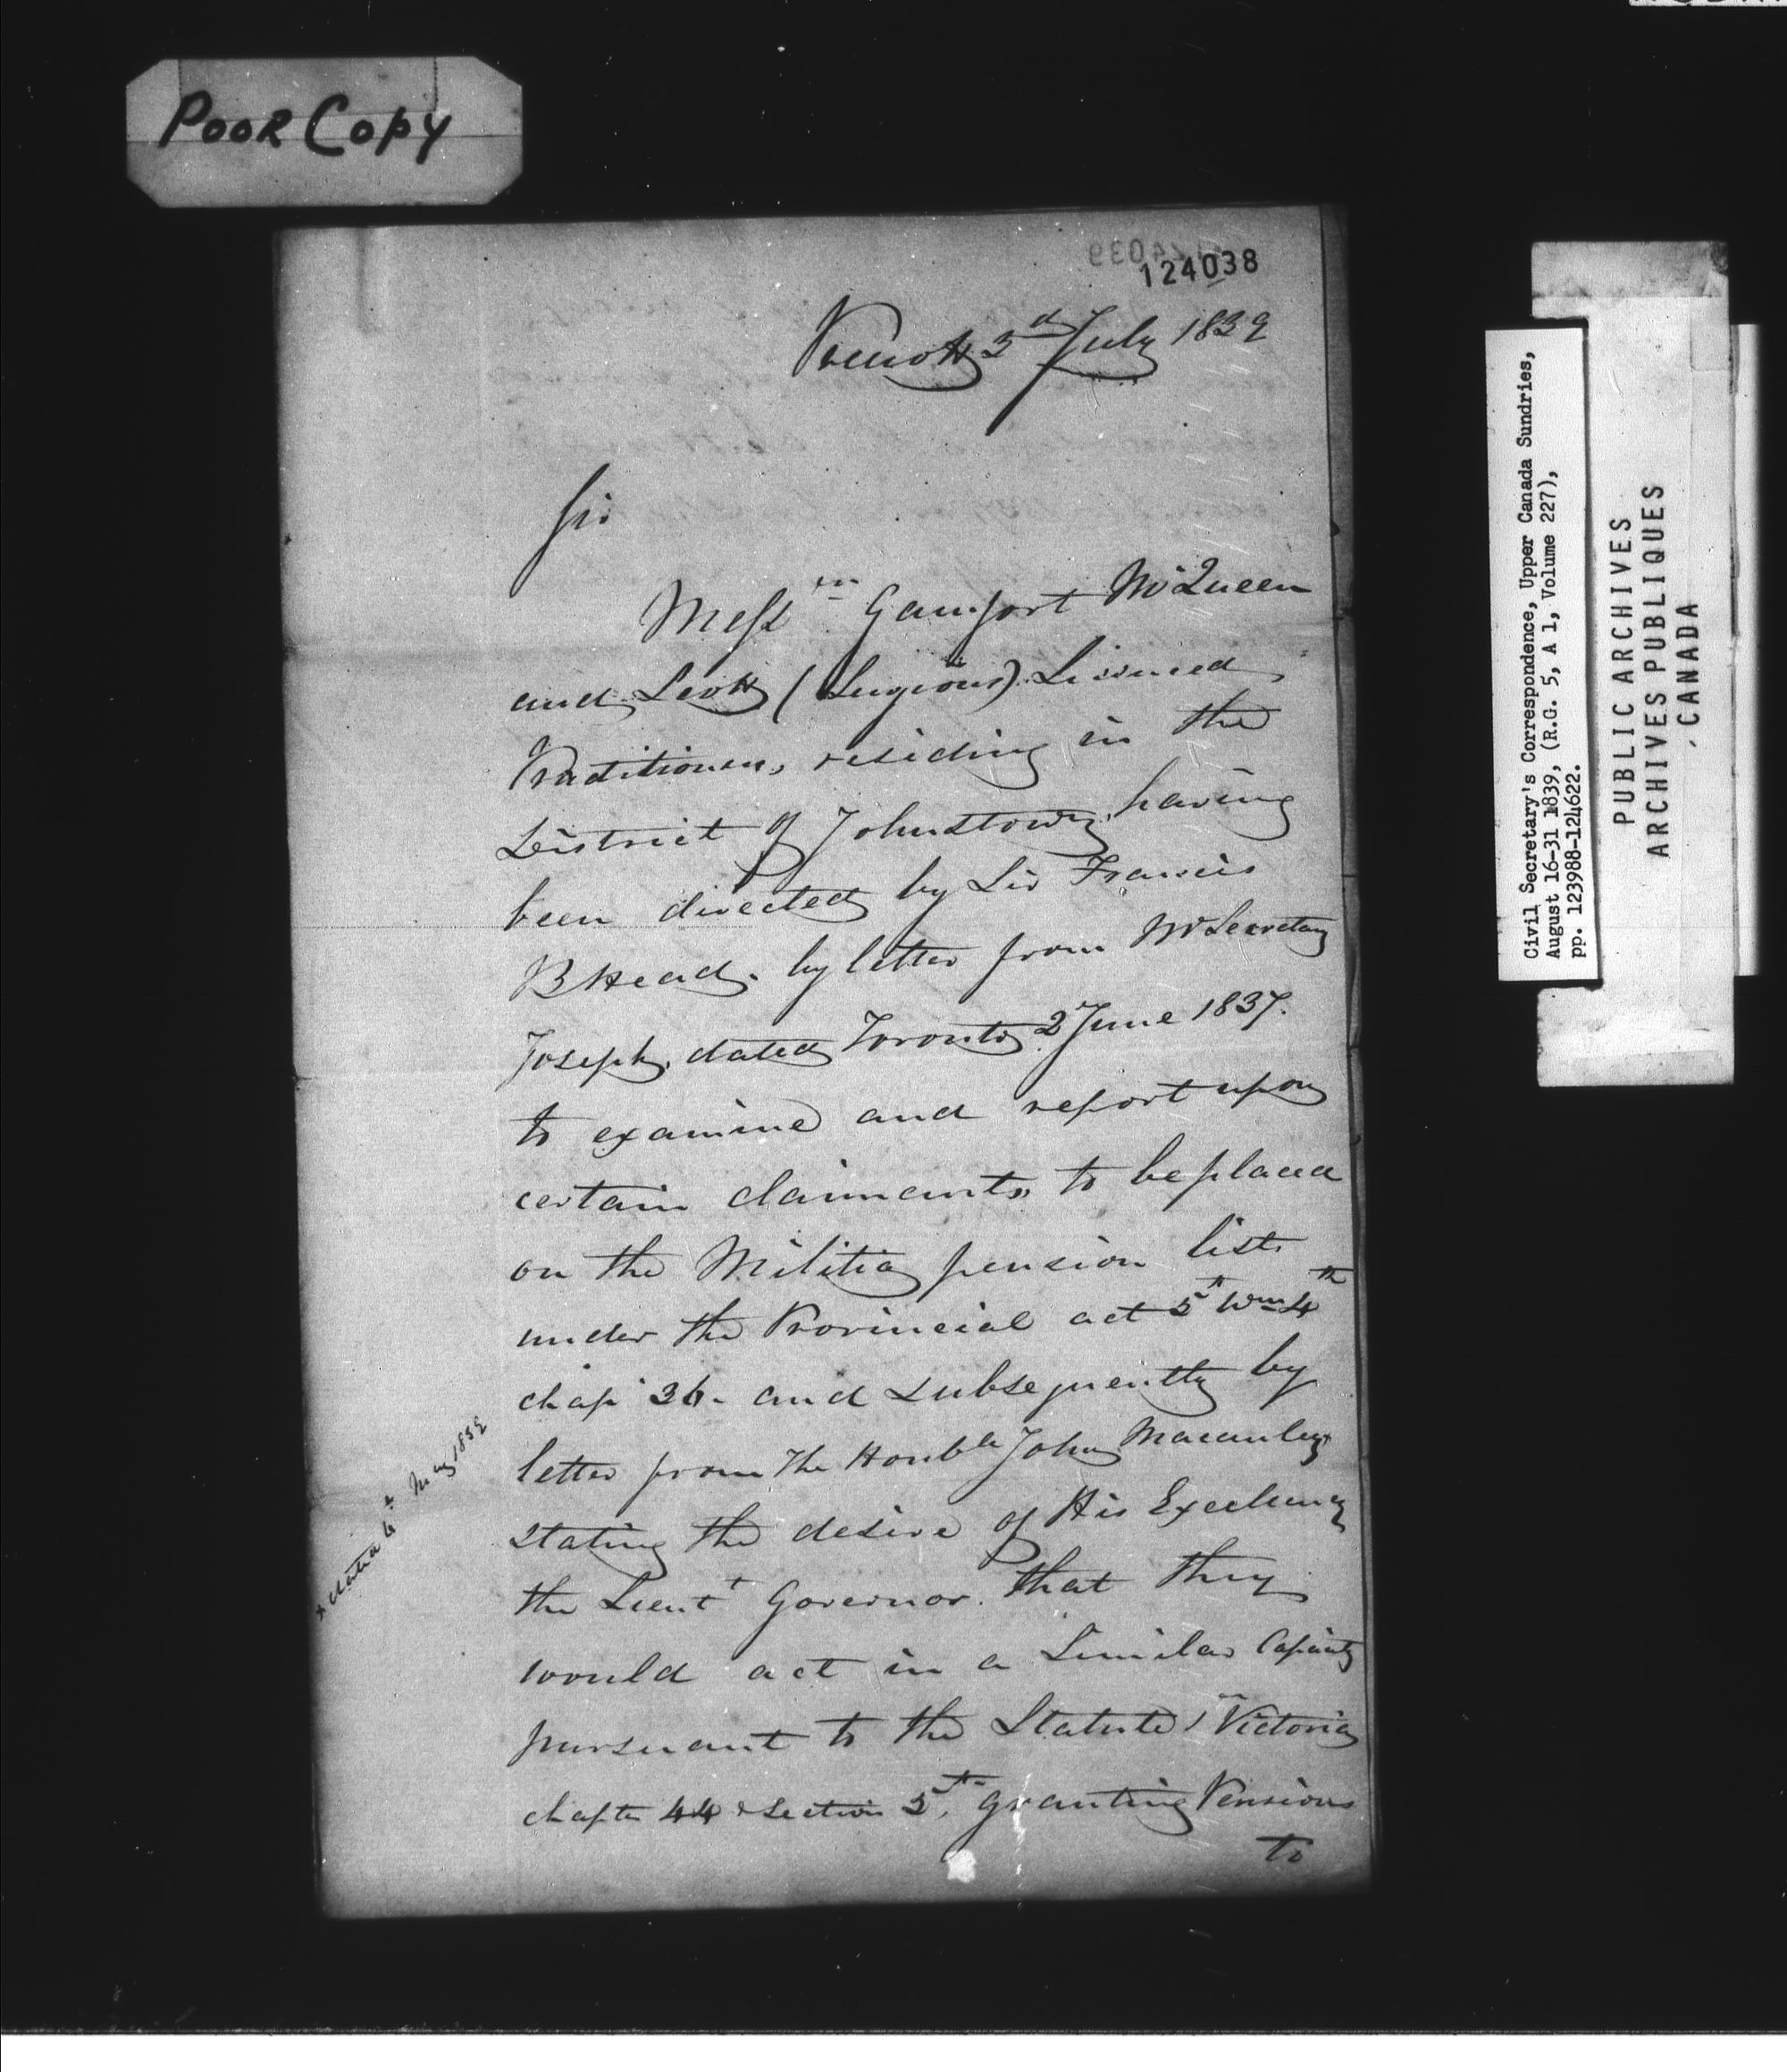 Poor Copy
124038
Prescott 3d July 1839
Sir
Messrs Gamfort McQueen
and Scott (Surgeons) Licensed
Practitioners, residing in the
District of Johnstown, having
been directed by Sir Francis
B Head. by letter from Mr Secretary
Joseph, dated Toronto 2 June 1837.
to examine and report upon
certain claimants, to be placed
on the Militia pension list
under the Provincial act 5th Wm 4th
chap 36. and subsequently by
letter from The Honble John Macaulay
stating the desire of His Excellency
the Lieut Governor. that they
would act in a Similar Capacity
pursuant to the Statute 1st Victoria
chapter 44 & Section 5th, granting Pensions
to
x dated 6th May 1839
Civil Secretary's Correspondence, Upper Canada Sundries,
August 16-31 1839, (R.G. 5, A 1, Volume 227),
pp. 123988-124622.
PUBLIC ARCHIVES
ARCHIVES PUBLIQUES
CANADA